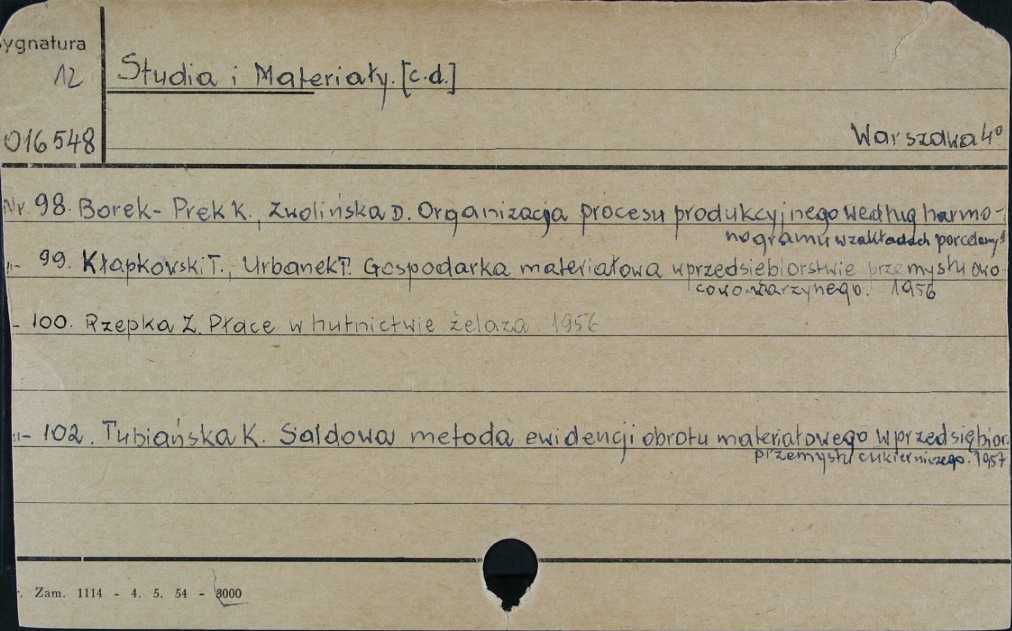 Sygnatura
12
Studia i Materiały. [c.d.]
016548
Warszawa 4°
Nr. 98. Borek-Pręk K., Zwolińska D. Organizacja procesu produkcyjnego według harmo-
nogramu w zakładach porcelany
-"- 99. Kłapkowski T., Urbanek T. Gospodarka materiałowa w przedsiębiorstwie przemysłu owo-
cowo-warzynego. 1956
- 100. Rzepka Z. Płace w hutnictwie żelaza 1956
-"- 102. Tubiańska K. Saldowa metoda ewidencji obrotu materiałowego w przedsiębior.
przemysłu cukierniczego. 1957
Zam. 1114 - 4. 5. 54 - 8000